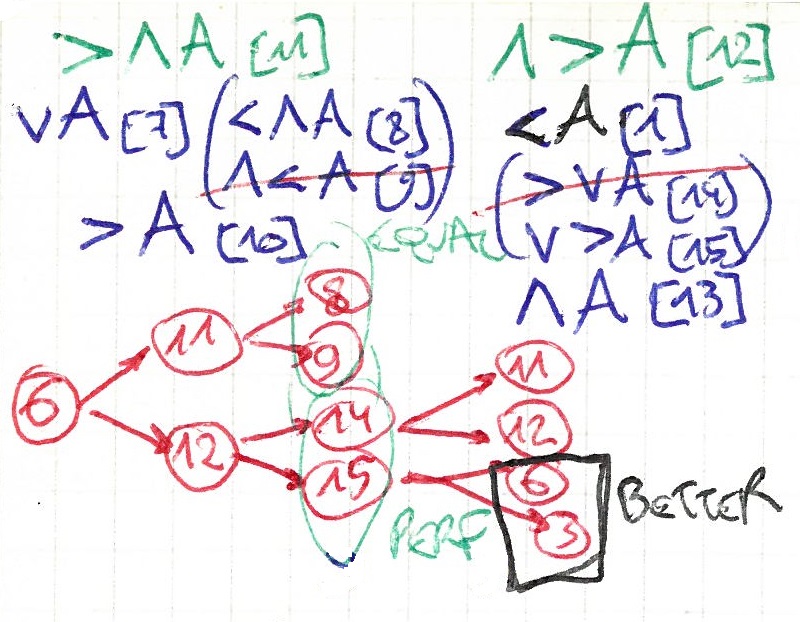 >ΛA [11]
Λ>A [12]
vA [7] (<ΛA [8]
Λ<A [9])
>A [10]
<A [1]
(>vA [14]
v>A [15])
ΛA [13]
EQUAL
6
11
12
8
9
14
15
11
12
6
3
PERF
BETTER